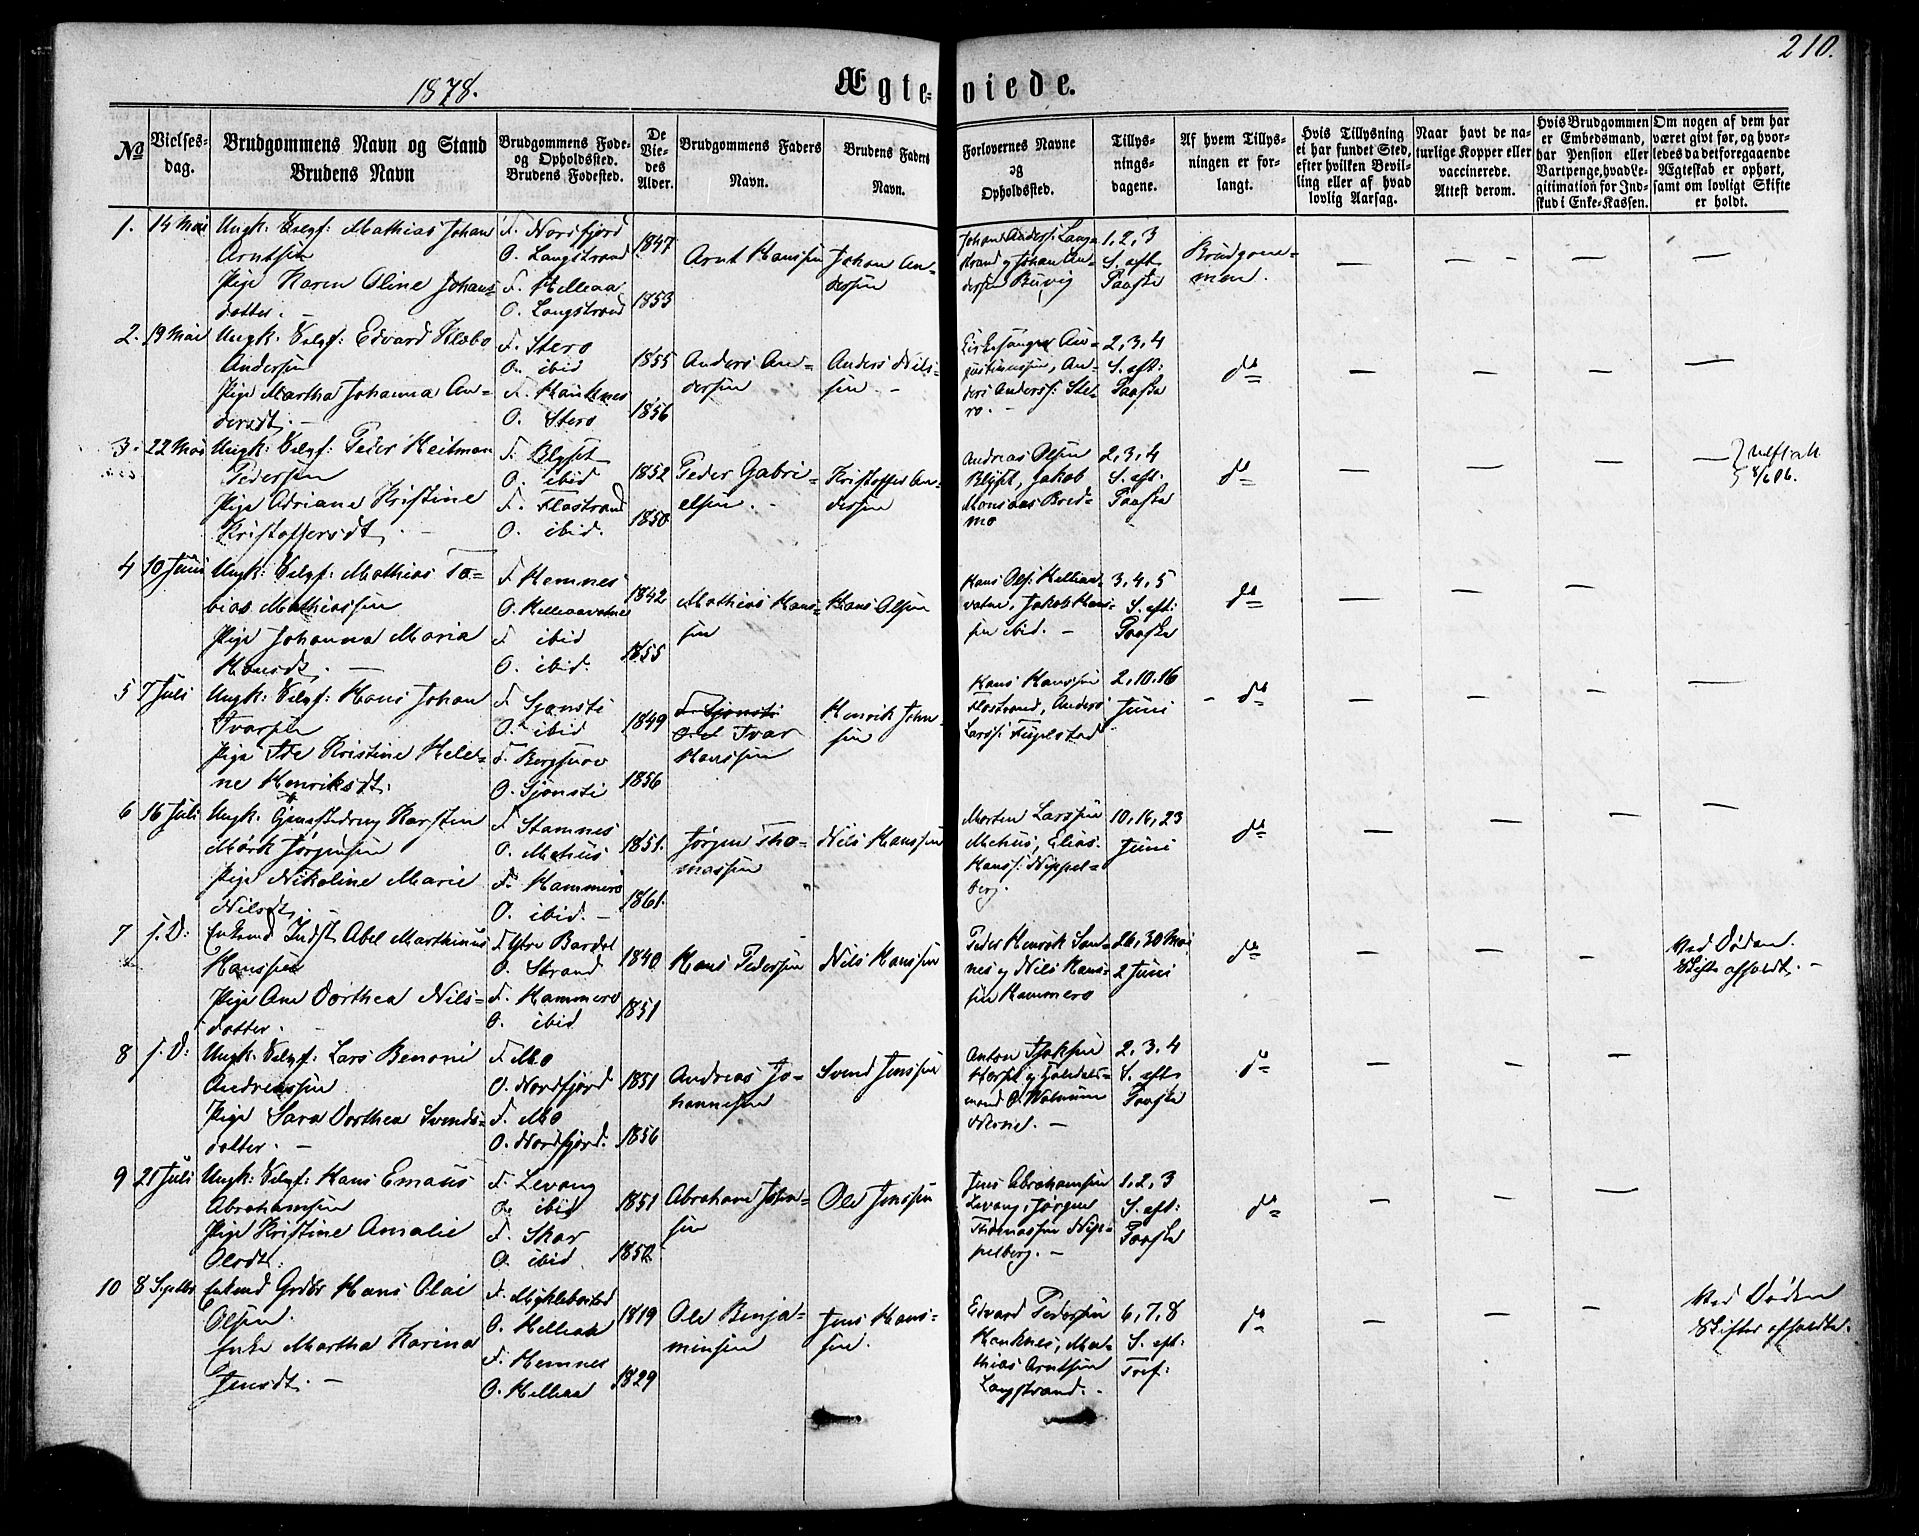 210.
1878.
Ægte-viede.
No
Vielses-
dag.
Brudgommens Navn og Stand
Brudens Navn
Brudgommens Føde-
og Opholdssted.
Brudens Fødested.
De
Vie-
des
Alder.
Brudgommens Faders
Navn.
Brudens Faders
Navn.
Forlovernes Navne
og
Opholdssted.
Tillys-
nings-
dagene.
Af hvem Tillys-
ningen er for-
langt.
Hvis Tillysning
ei har fundet Sted,
efter hvilken Bevil-
ling eller af hvad
lovlig Aarsag.
Naar havt de na-
turlige Kopper eller
vaccinerede.
Attest derom.
Hvis Brudgommen
er Embedsmand,
har Pension eller
Vartpenge, hvad Le-
gitimation for Ind-
skud i Enke-Kassen.
Om nogen af dem har
været givt før, og hvor-
ledes da det foregaaende
Ægteskab er ophørt,
samt om lovligt Skifte
er holdt.
1. 14 Mai Ungk: Selvf: Mathias Johan
Arntsen
Pige Karen Oline Johans-
datter. —
F. Nordfjord
O. Langstrand
F. Hellaa
O. Langstrand
1847
1853
Arnt Hanssen
Johan An-
dersen
Johan Anders: Lang-
strand og Johan An-
dersen Buvig
1, 2, 3
S. eft.
Paaske
Brudgom-
men.
— — — —
2. 19 Mai Ungk: Selvf: Edvard Klæbo
Andersen
Pige Martha Johanna An-
dersdt. —
F. Stero
O. ibid
F. Hauknes
O. Stero
1855
1856
Anders An-
dersen
Anders Nils-
sen. —
Kirkesanger Au-
gustinussen, An-
ders Anderss: Ste-
ro. —
2, 3, 4
S. eft:
Paaske
do
— — — —
3. 22 Mai Ungk: Selvf: Peder Heitman
Pedersen
Pige Adriane Kristine
Kristoffersdt. —
F. Blyset
O. ibid
F. Flostrand
O. ibid.
1852
1850
Peder Gabri-
elsen. —
Kristoffer An-
dersen
Andreas Olsen
Blyset, Jakob
Monsaas Bred-
mo
2, 3, 4
S. eft:
Paaske
do
— — — —
8/6 06.
4 10 Juni Ungk: Selvf: Mathias To-
bias Mathiassen
Pige Johanna Maria
Hansdt. —
F. Hemnes
O. Hellaavatnet
F. ibid
O. ibid.
1842
1855
Mathias Hans-
sen
Hans Olsen
Hans Ols: Hellaa-
vatne, Jakob Hans-
sen ibid. —
3, 4, 5
S. eft:
Paaske
do
— — —
5 7 Juli Ungk: Selvf: Hans Johan
Ivarsen
Pige Kristine Hele-
ne Henriksdt:
F. Sjonsti
O. ibid
F. Bergsnov
O. Sjonsti
1849
1856
Ivar
Hanssen
Henrik John-
sen
Hans Hanssen
Flostrand, Anders
Larss: Fuglstad
2, 10, 16
Juni
— do
— — — —
6 16 Juli Ungk. Karsten
Mørk Jørgensen
Pige Nikoline Marie
Nilsdt. —
F. Stamnes
O. Mehus
F. Hammerø
O. ibid. —
1851.
1861.
Jørgen Tho-
massen
Nils Hanssen
Morten Larssen
Mehus, Elias
Hanss: Nippel-
berg.
10, 16, 23
Juni
do
— — — —
7 s. D: Enkmd Indst Abel Marthinus
Hanssen
Pige Ane Dorthea Nils-
datter. —
F. Ytre Bardal
O. Strand
F. Hammerø
O. ibid
1840
1851
Hans Pedersen
Nils Hanssen
Peder Henrik Sand-
nes og Nils Hans-
sen Hammerø
26, 30 Mai
2 Juni
do
— — —
Ved Døden.
Skifte afholdt. —
8 s. D: Ungk: Selvf: Lars Benoni
Andreassen
Pige Sara Dorthea Svends-
datter. —
F. Mo
O. Nordfjord
F. Mo
O. Nordfjord.
1851
1856
Andreas Jo-
hannesen
Svend Jenssen
2, 3, 4
S. eft.
Paaske
do
— — —
9 21 Juli Ungk: Selvf: Hans Emaus
Abrahamsen
Pige Kristine Amalie
Olsdt:
F. Levang
O. ibid
F. Skar
O. ibid.
1851
1850
Abraham John-
sen
Ole Jenssen
Jens Abrahamsen
Levang, Jørgen
Thomassen Nip-
pelberg. —
1, 2, 3
S. eft:
Paaske
do
— — —
10 8 Septbr Enkmd Grdbr Hans Olai
Olsen.
Enke Martha Karina
Jensdt. —
F. Myklebostad
O. Hellaa
F. Hemnes
O. Hellaa
1819
1829
Ole Benja-
minsen
Jens Hans-
sen.
Edvard Pedersen
Hauknes, Ma-
thias Arntsen
Langstrand. —
6, 7, 8
S. eft:
Tref:
do
— — —
Ved Døden
Skifter afholdte.